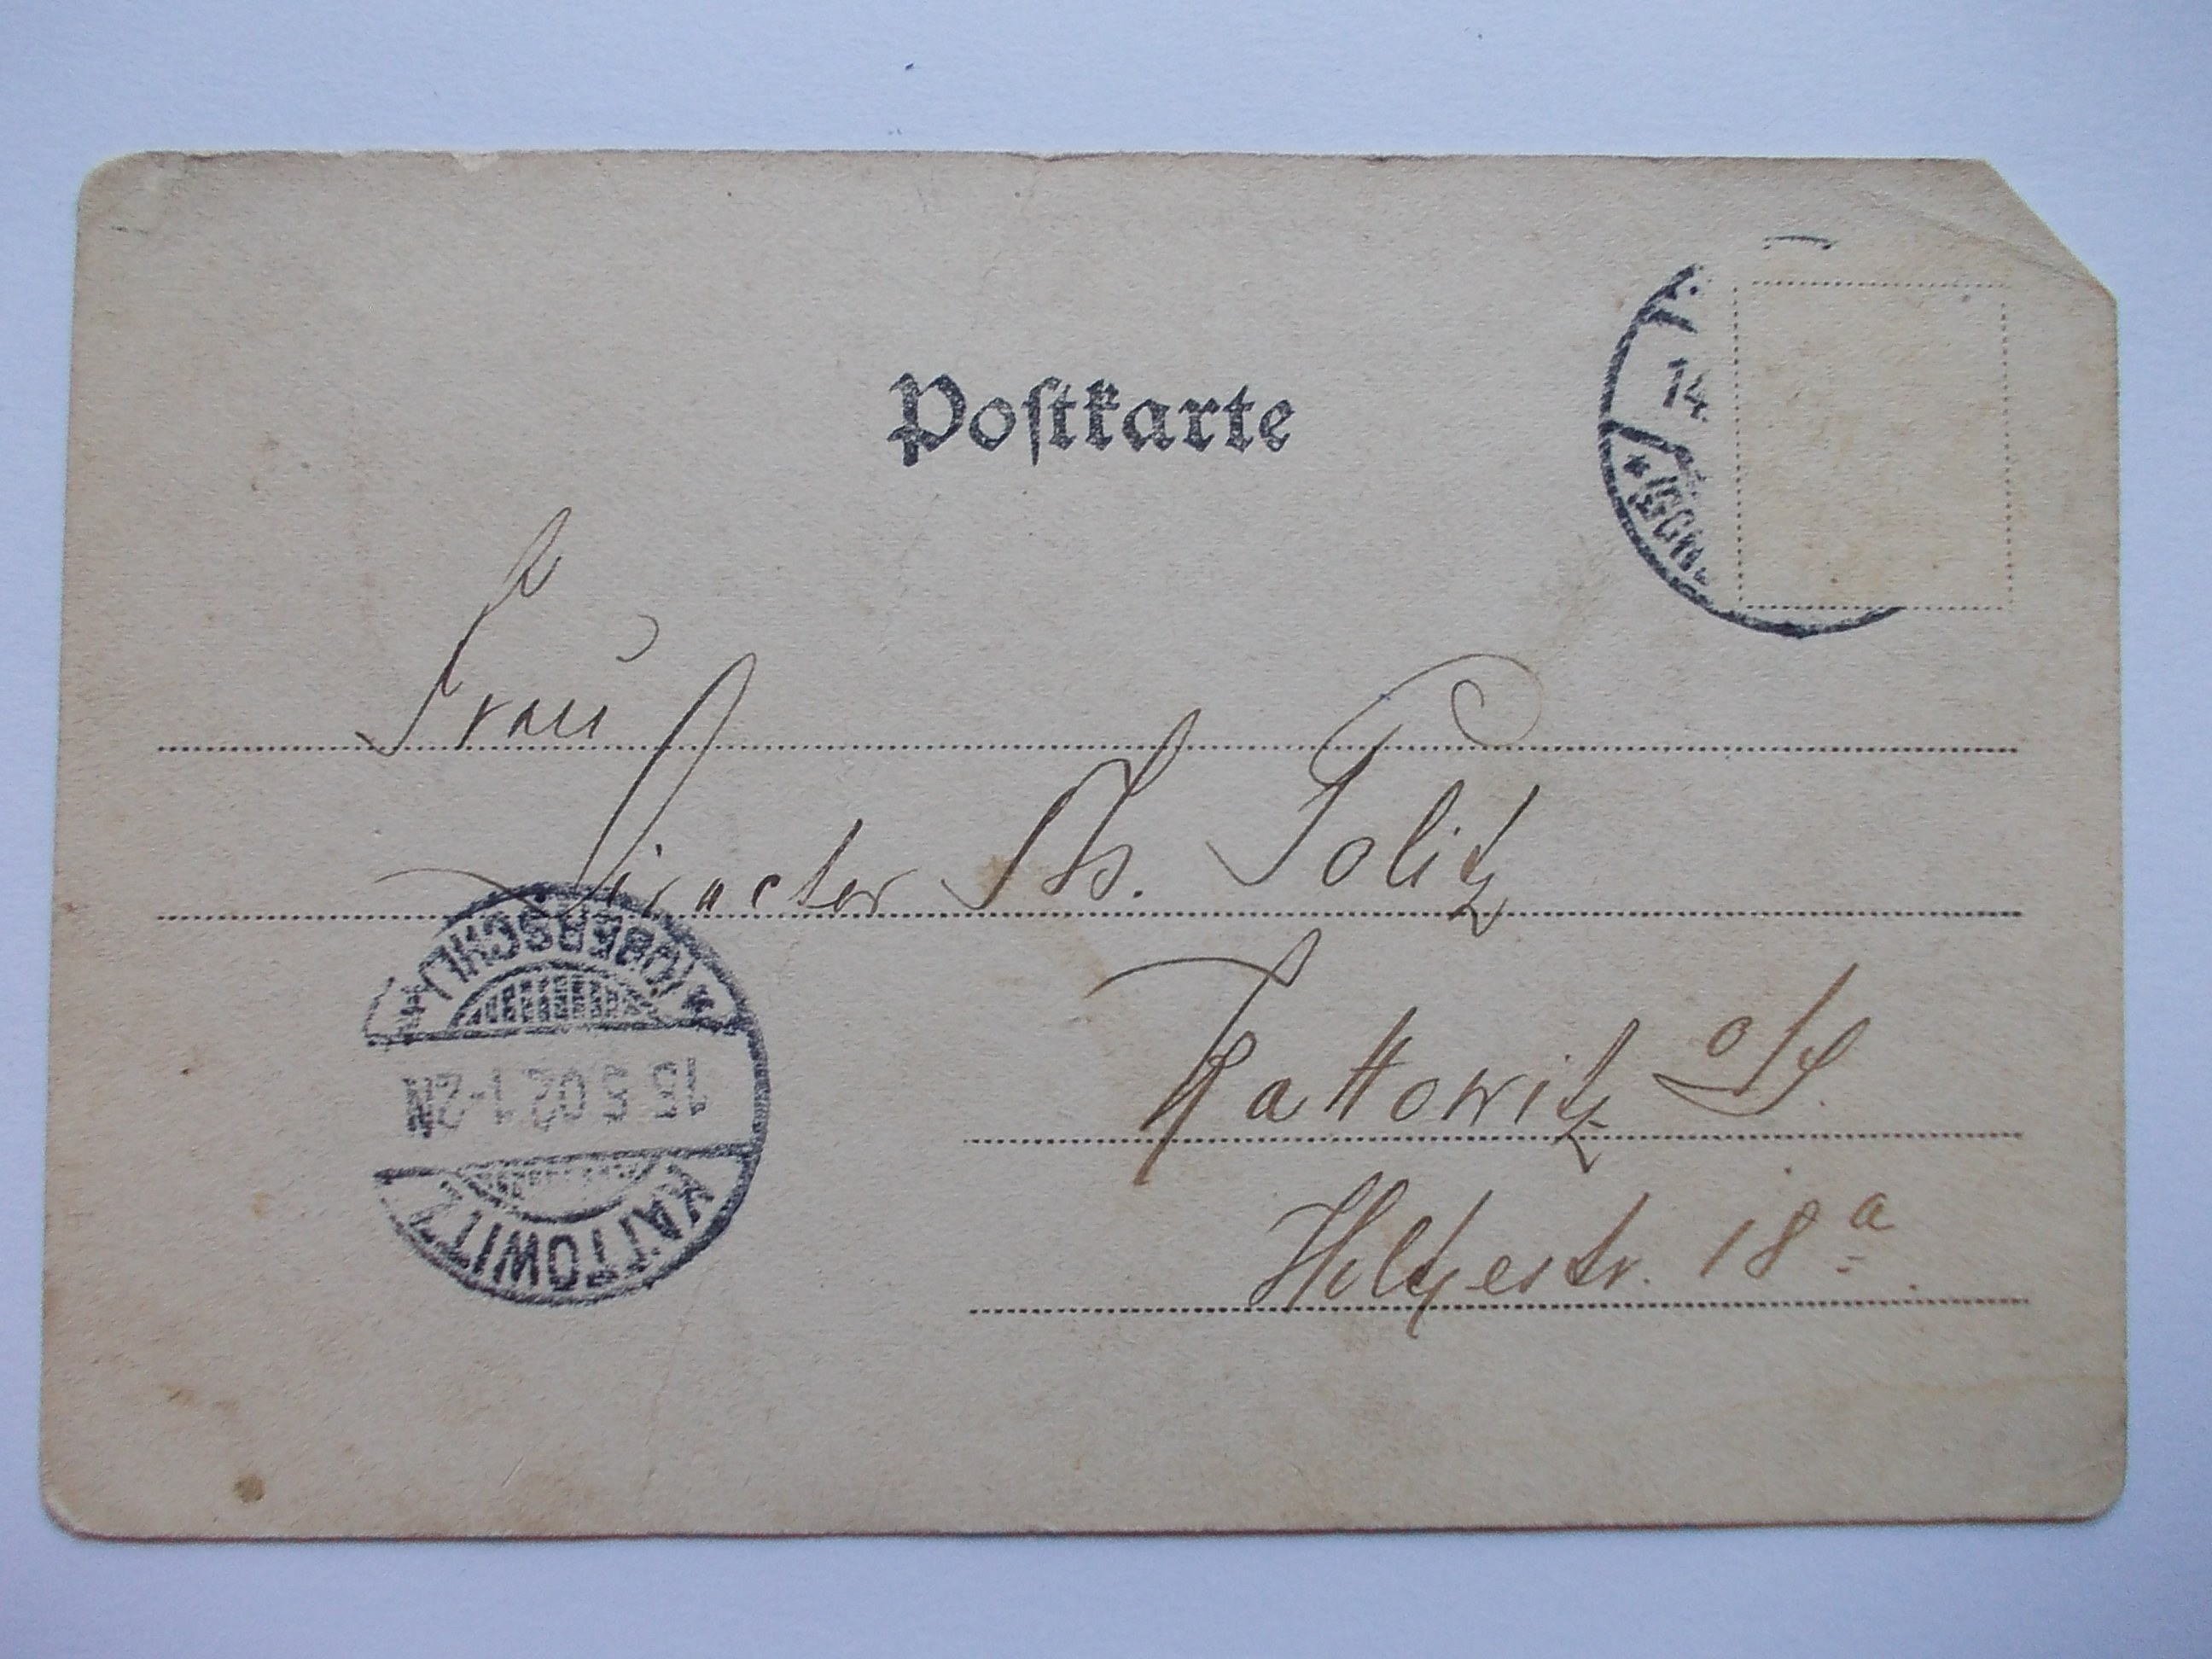 Postkarte
14
Frau
Director Th. Politz
Kattowitz O/S.
Holtzestr. 18a
KATTOWITZ
15.5.02.1-2N
(OBERSCHL.)